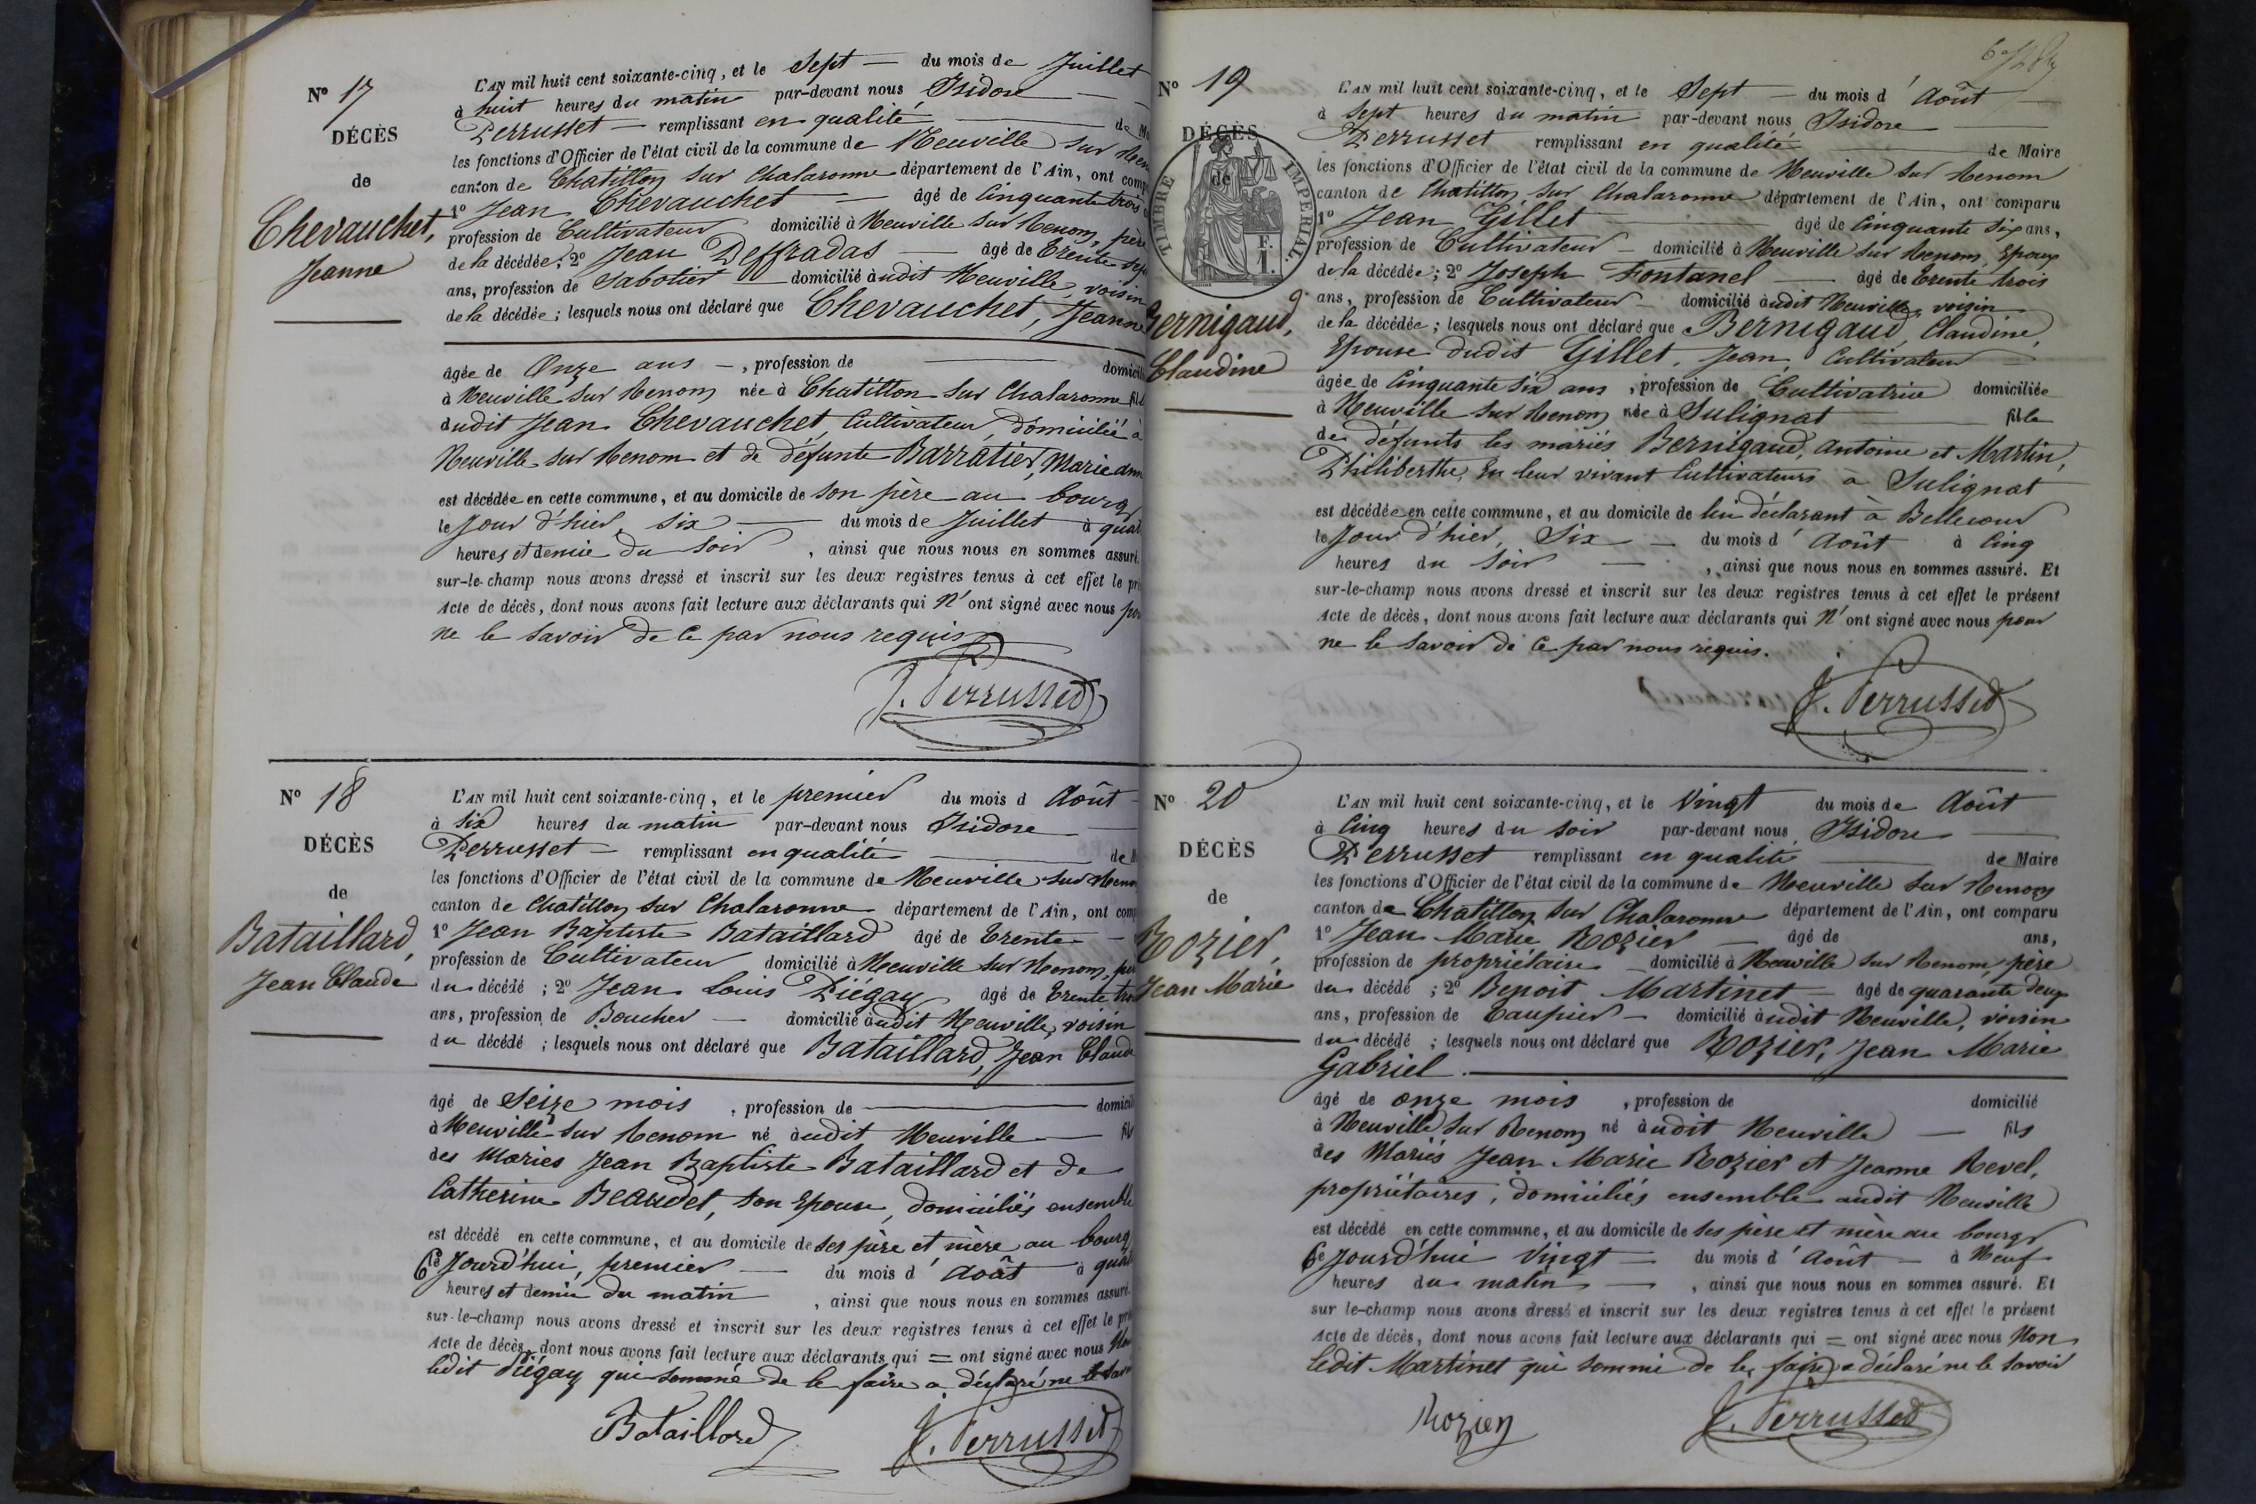 N° 17
DÉCÈS
de
Chevauchet,
Jeanne
L'AN mil huit cent soixante-cinq, et le Sept — du mois de Juillet
à huit heures du matin par-devant nous Isidore —
Perrusset — remplissant en qualité — de
les fonctions d'Officier de l'état civil de la commune de Neuville sur
canton de Chatillon sur Chalaronne département de l'Ain, ont
1° Jean Chevauchet — âgé de Cinquante trois
profession de Cultivateur domicilié à Neuville sur Renom, père
de la décédée; 2° Jean Deffradas — âgé de Trente
ans, profession de Sabotier — domicilié àudit Neuville, voisin
de la décédée; lesquels nous ont déclaré que Chevauchet, Jeanne
âgée de Onze ans —, profession de —
à Neuville sur Renom née à Chatillon sur Chalaronne
dudit Jean Chevauchet, Cultivateur, domicilié à
Neuville sur Renom et de défunte Barratier, Marie
est décédée en cette commune, et au domicile de son père au bourg
le Jour d'hier, six — du mois de Juillet à
heures et demie du soir, ainsi que nous nous en sommes assuré.
sur-le-champ nous avons dressé et inscrit sur les deux registres tenus à cet effet le
Acte de décès, dont nous avons fait lecture aux déclarants qui N'ont signé avec nous
ne le savoir de ce par nous requis
J. Perrusset
N° 18
DÉCÈS
de
Bataillard,
Jean Claude
L'AN mil huit cent soixante-cinq, et le premier du mois d Août
à six heures du matin par-devant nous Isidore —
Perrusset — remplissant en qualité — de
les fonctions d'Officier de l'état civil de la commune de Neuville sur
canton de Chatillon sur Chalaronne département de l'Ain, ont
1° Jean Baptiste Bataillard âgé de Trente —
profession de Cultivateur domicilié à Neuville sur Renom,
du décédé; 2° Jean Louis Piégay âgé de Trente
ans, profession de Boucher — domicilié àudit Neuville, voisin
du décédé; lesquels nous ont déclaré que Bataillard, Jean Claude
âgé de Seize mois, profession de —
à Neuville sur Renom né àudit Neuville — fils
des Mariés Jean Baptiste Bataillard et de
Catherine Beaudet, son Epouse, domiciliés ensemble
est décédé en cette commune, et au domicile de ses père et mère au bourg
Ce Jourd'hui, premier — du mois d'Août à
heures et demie du matin, ainsi que nous nous en sommes assuré.
sur-le-champ nous avons dressé et inscrit sur les deux registres tenus à cet effet le
Acte de décès, dont nous avons fait lecture aux déclarants qui = ont signé avec nous
ledit Piégay qui sommé de le faire a déclaré ne le
Bataillard J. Perrusset
N° 19
DÉCÈS
de
TIMBRE IMPERIAL.
Bernigaud,
Claudine
L'AN mil huit cent soixante-cinq, et le Sept — du mois d'Août
à Sept heures du matin par-devant nous Isidore —
Perrusset remplissant en qualité — de Maire
les fonctions d'Officier de l'état civil de la commune de Neuville sur Renom
canton de Chatillon sur Chalaronne département de l'Ain, ont comparu
1° Jean Gillet — âgé de Cinquante six ans,
profession de Cultivateur — domicilié à Neuville sur Renom, Epoux
de la décédée; 2° Joseph Fontanel — âgé de Trente trois
ans, profession de Cultivateur — domicilié àudit Neuville, voisin
de la décédée; lesquels nous ont déclaré que Bernigaud, Claudine,
Epouse dudit Gillet, Jean, Cultivateur —
âgée de Cinquante six ans, profession de Cultivatrice domiciliée
à Neuville sur Renom née à Sulignat — fille
de défunts les mariés Bernigaud, Antoine et Martin,
Philiberthe, En leur vivant Cultivateurs à Sulignat
est décédée en cette commune, et au domicile de lui déclarant à Bellecour
le Jour d'hier, Six — du mois d'Août à Cinq
heures du soir —, ainsi que nous nous en sommes assuré. Et
sur-le-champ nous avons dressé et inscrit sur les deux registres tenus à cet effet le présent
Acte de décès, dont nous avons fait lecture aux déclarants qui N'ont signé avec nous pour
ne le savoir de ce par nous requis.
J. Perrusset
N° 20
DÉCÈS
de
Rozier,
Jean Marie
L'AN mil huit cent soixante-cinq, et le Vingt du mois de Août
à Cinq heures du soir par-devant nous Isidore —
Perrusset remplissant en qualité — de Maire
les fonctions d'Officier de l'état civil de la commune de Neuville sur Renom
canton de Chatillon sur Chalaronne département de l'Ain, ont comparu
1° Jean Marie Rozier — âgé de ans,
profession de propriétaire domicilié à Neuville sur Renom, père
du décédé; 2° Benoit Martinet — âgé de quarante deux
ans, profession de Taupier — domicilié àudit Neuville, voisin
du décédé; lesquels nous ont déclaré que Rozier, Jean Marie
Gabriel. —
âgé de onze mois, profession de domicilié
à Neuville sur Renom né àudit Neuville — fils
des Mariés Jean Marie Rozier et Jeanne Revel,
propriétaires, domiciliés ensemble audit Neuville
est décédé en cette commune, et au domicile de ses père et mère au bourg
Ce Jourd'hui Vingt — du mois d'Août — à Neuf
heures du matin —, ainsi que nous nous en sommes assuré. Et
sur le-champ nous avons dressé et inscrit sur les deux registres tenus à cet effet le présent
Acte de décès, dont nous avons fait lecture aux déclarants qui = ont signé avec nous Non
ledit Martinet qui sommé de le faire a déclaré ne le savoir
Rozier J. Perrusset